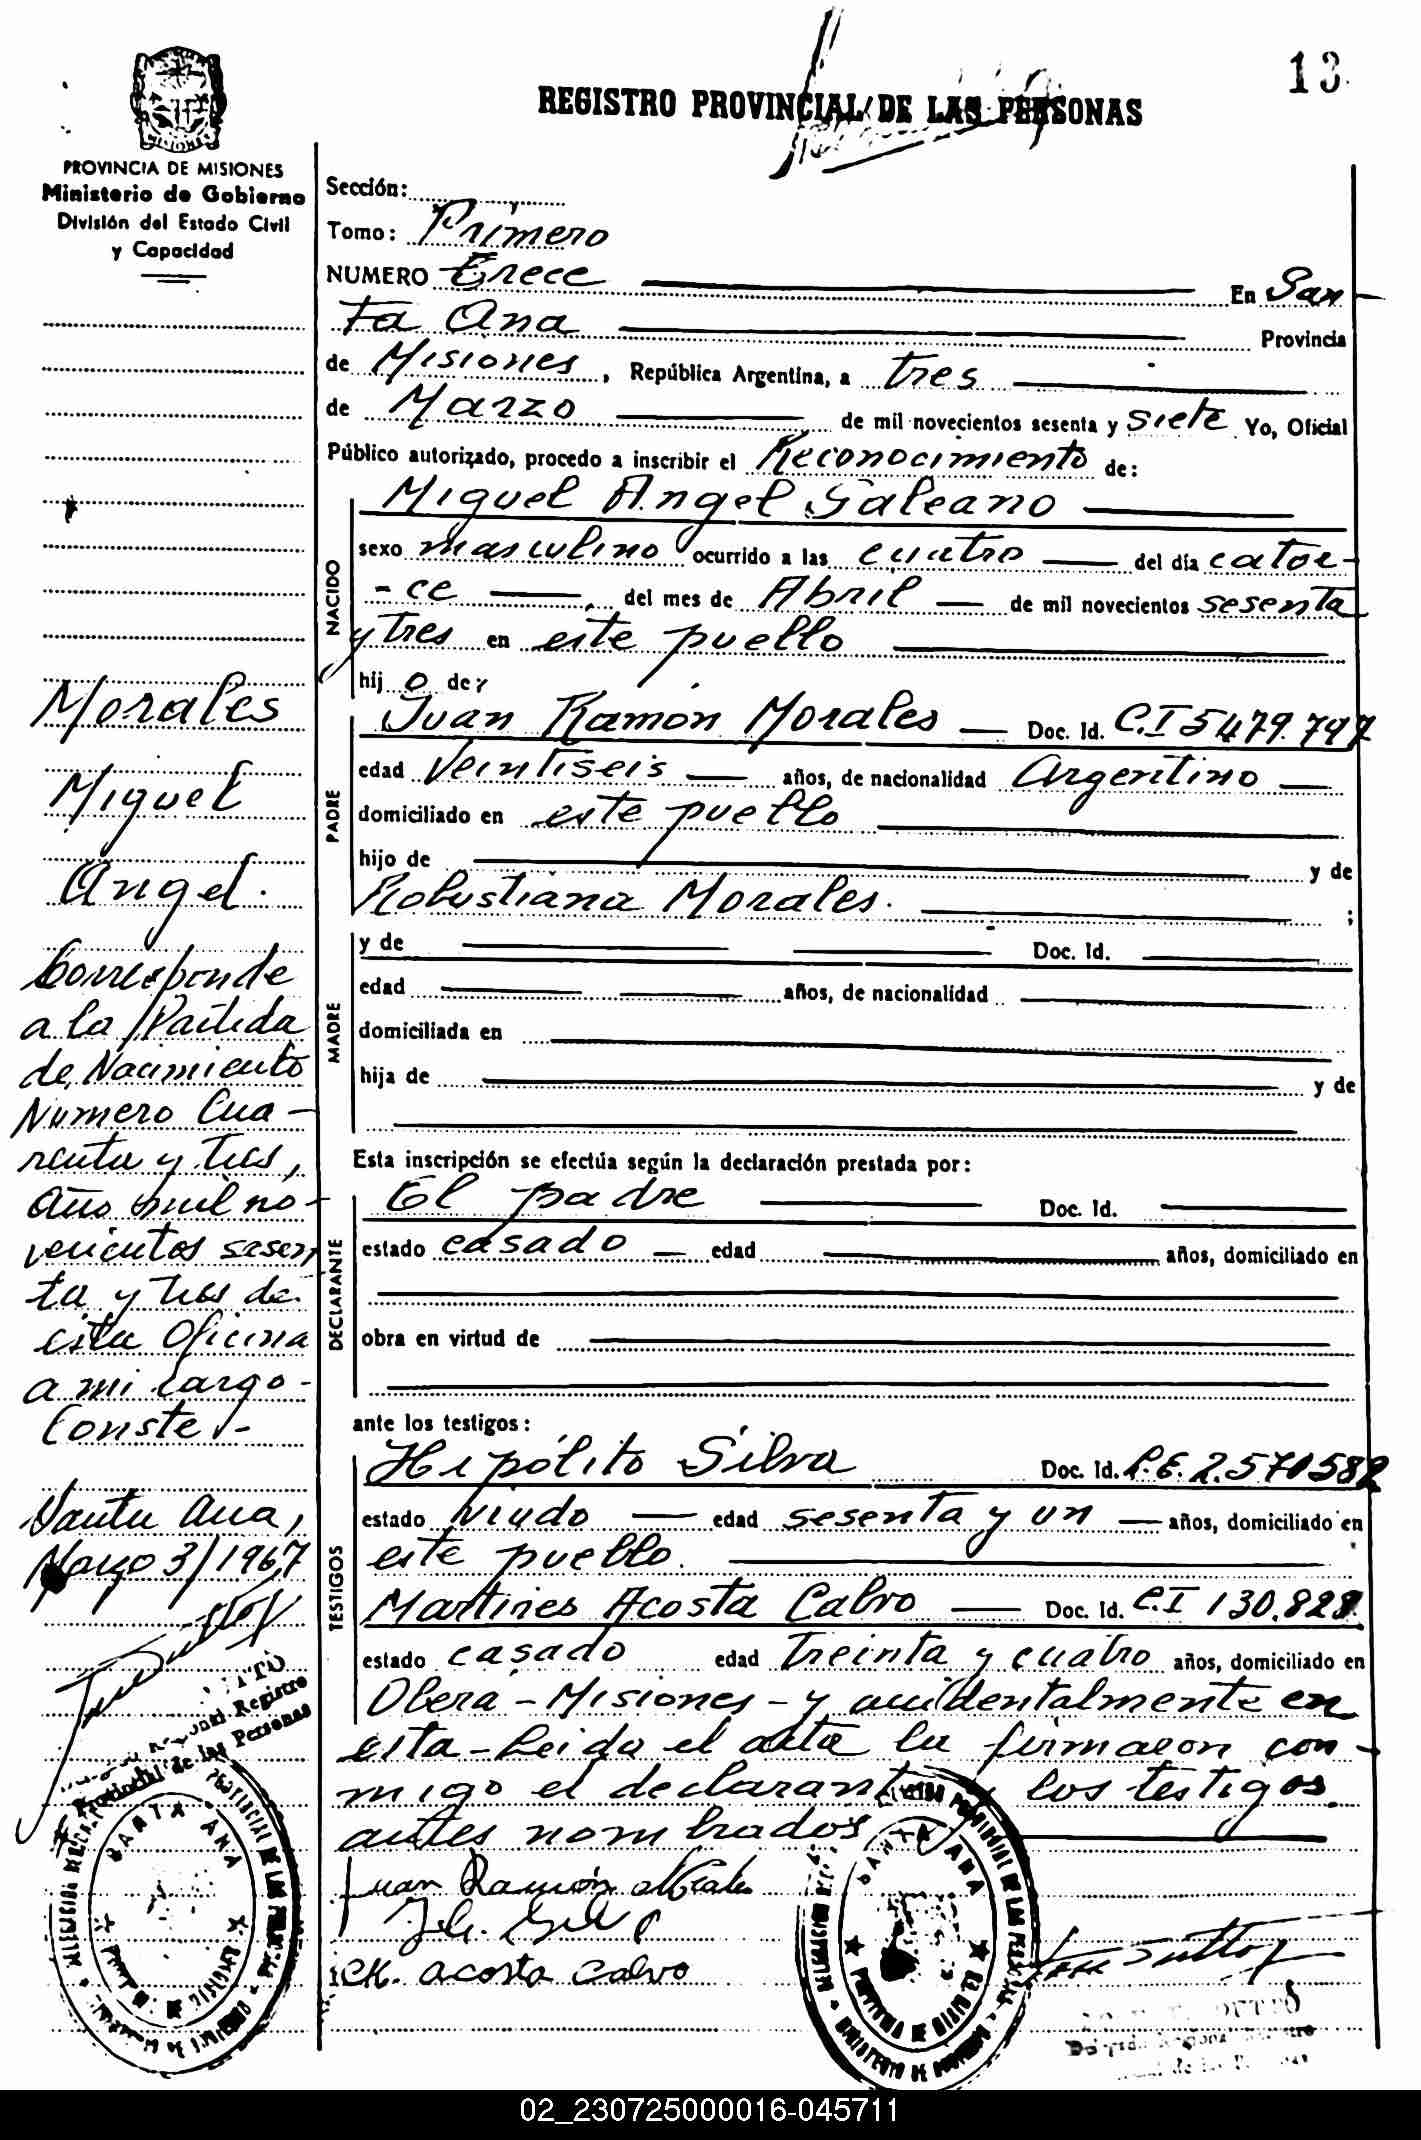 13
REGISTRO PROVINCIAL DE LAS PERSONAS
PROVINCIA DE MISIONES
Ministerio de Gobierno
División del Estado Civil
y Capacidad
Morales
Miguel
Angel.
Corresponde
a la Partida
de Nacimiento
Numero Cua-
renta y tres,
año mil no-
vecientos sesen
ta y tres de
esta Oficina
a mi cargo-
Conste.-
Santa Ana,
Marzo 3/1967
Sección:
Tomo: Primero
NUMERO Trece En San-
ta Ana Provincia
de Misiones, República Argentina, a tres
de Marzo de mil novecientos sesenta y siete Yo, Oficial
Público autorizado, procedo a inscribir el Reconocimiento de:
NACIDO
Miguel Angel Galeano
sexo masculino ocurrido a las cuatro del día cator-
-ce del mes de Abril de mil novecientos sesenta
y tres en este pueblo
hij o de:
PADRE
Juan Ramón Morales Doc. Id. C.I 5479.797
edad Veintiseis años, de nacionalidad Argentino
domiciliado en este pueblo
hijo de y de
Robustiana Morales. ;
MADRE
y de Doc. Id.
edad años, de nacionalidad
domiciliada en
hija de y de
Esta inscripción se efectúa según la declaración prestada por:
DECLARANTE
El padre Doc. Id.
estado casado edad años, domiciliado en
obra en virtud de
ante los testigos:
TESTIGOS
Hipólito Silva Doc. Id. 2.570582
estado viudo edad sesenta y un años, domiciliado en
este pueblo.
Martires Acosta Calvo Doc. Id. C.I 130.828
estado casado edad treinta y cuatro años, domiciliado en
Obera - Misiones - y accidentalmente en
esta - Leida el acta la firmaron con-
migo el declarante y los testigos
antes nombrados
Juan Ramón Morales
M. acosta calvo
Registro
Provincial de las Personas
SANTA ANA
PROVINCIAL DE LAS PERSONAS
SANTA ANA
PROVINCIAL DE LAS PERSONAS
PROVINCIA DE MISIONES
02_230725000016-045711